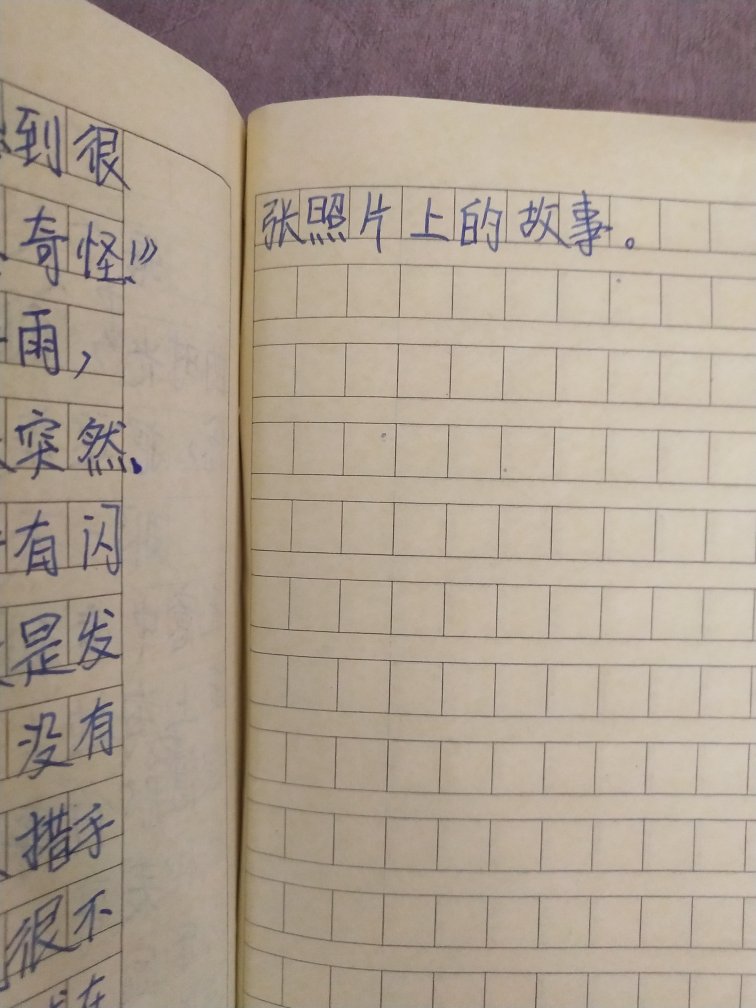 到很
奇怪!"
雨，
突然
有闪
是发
没有
措手
很不
张照片上的故事。